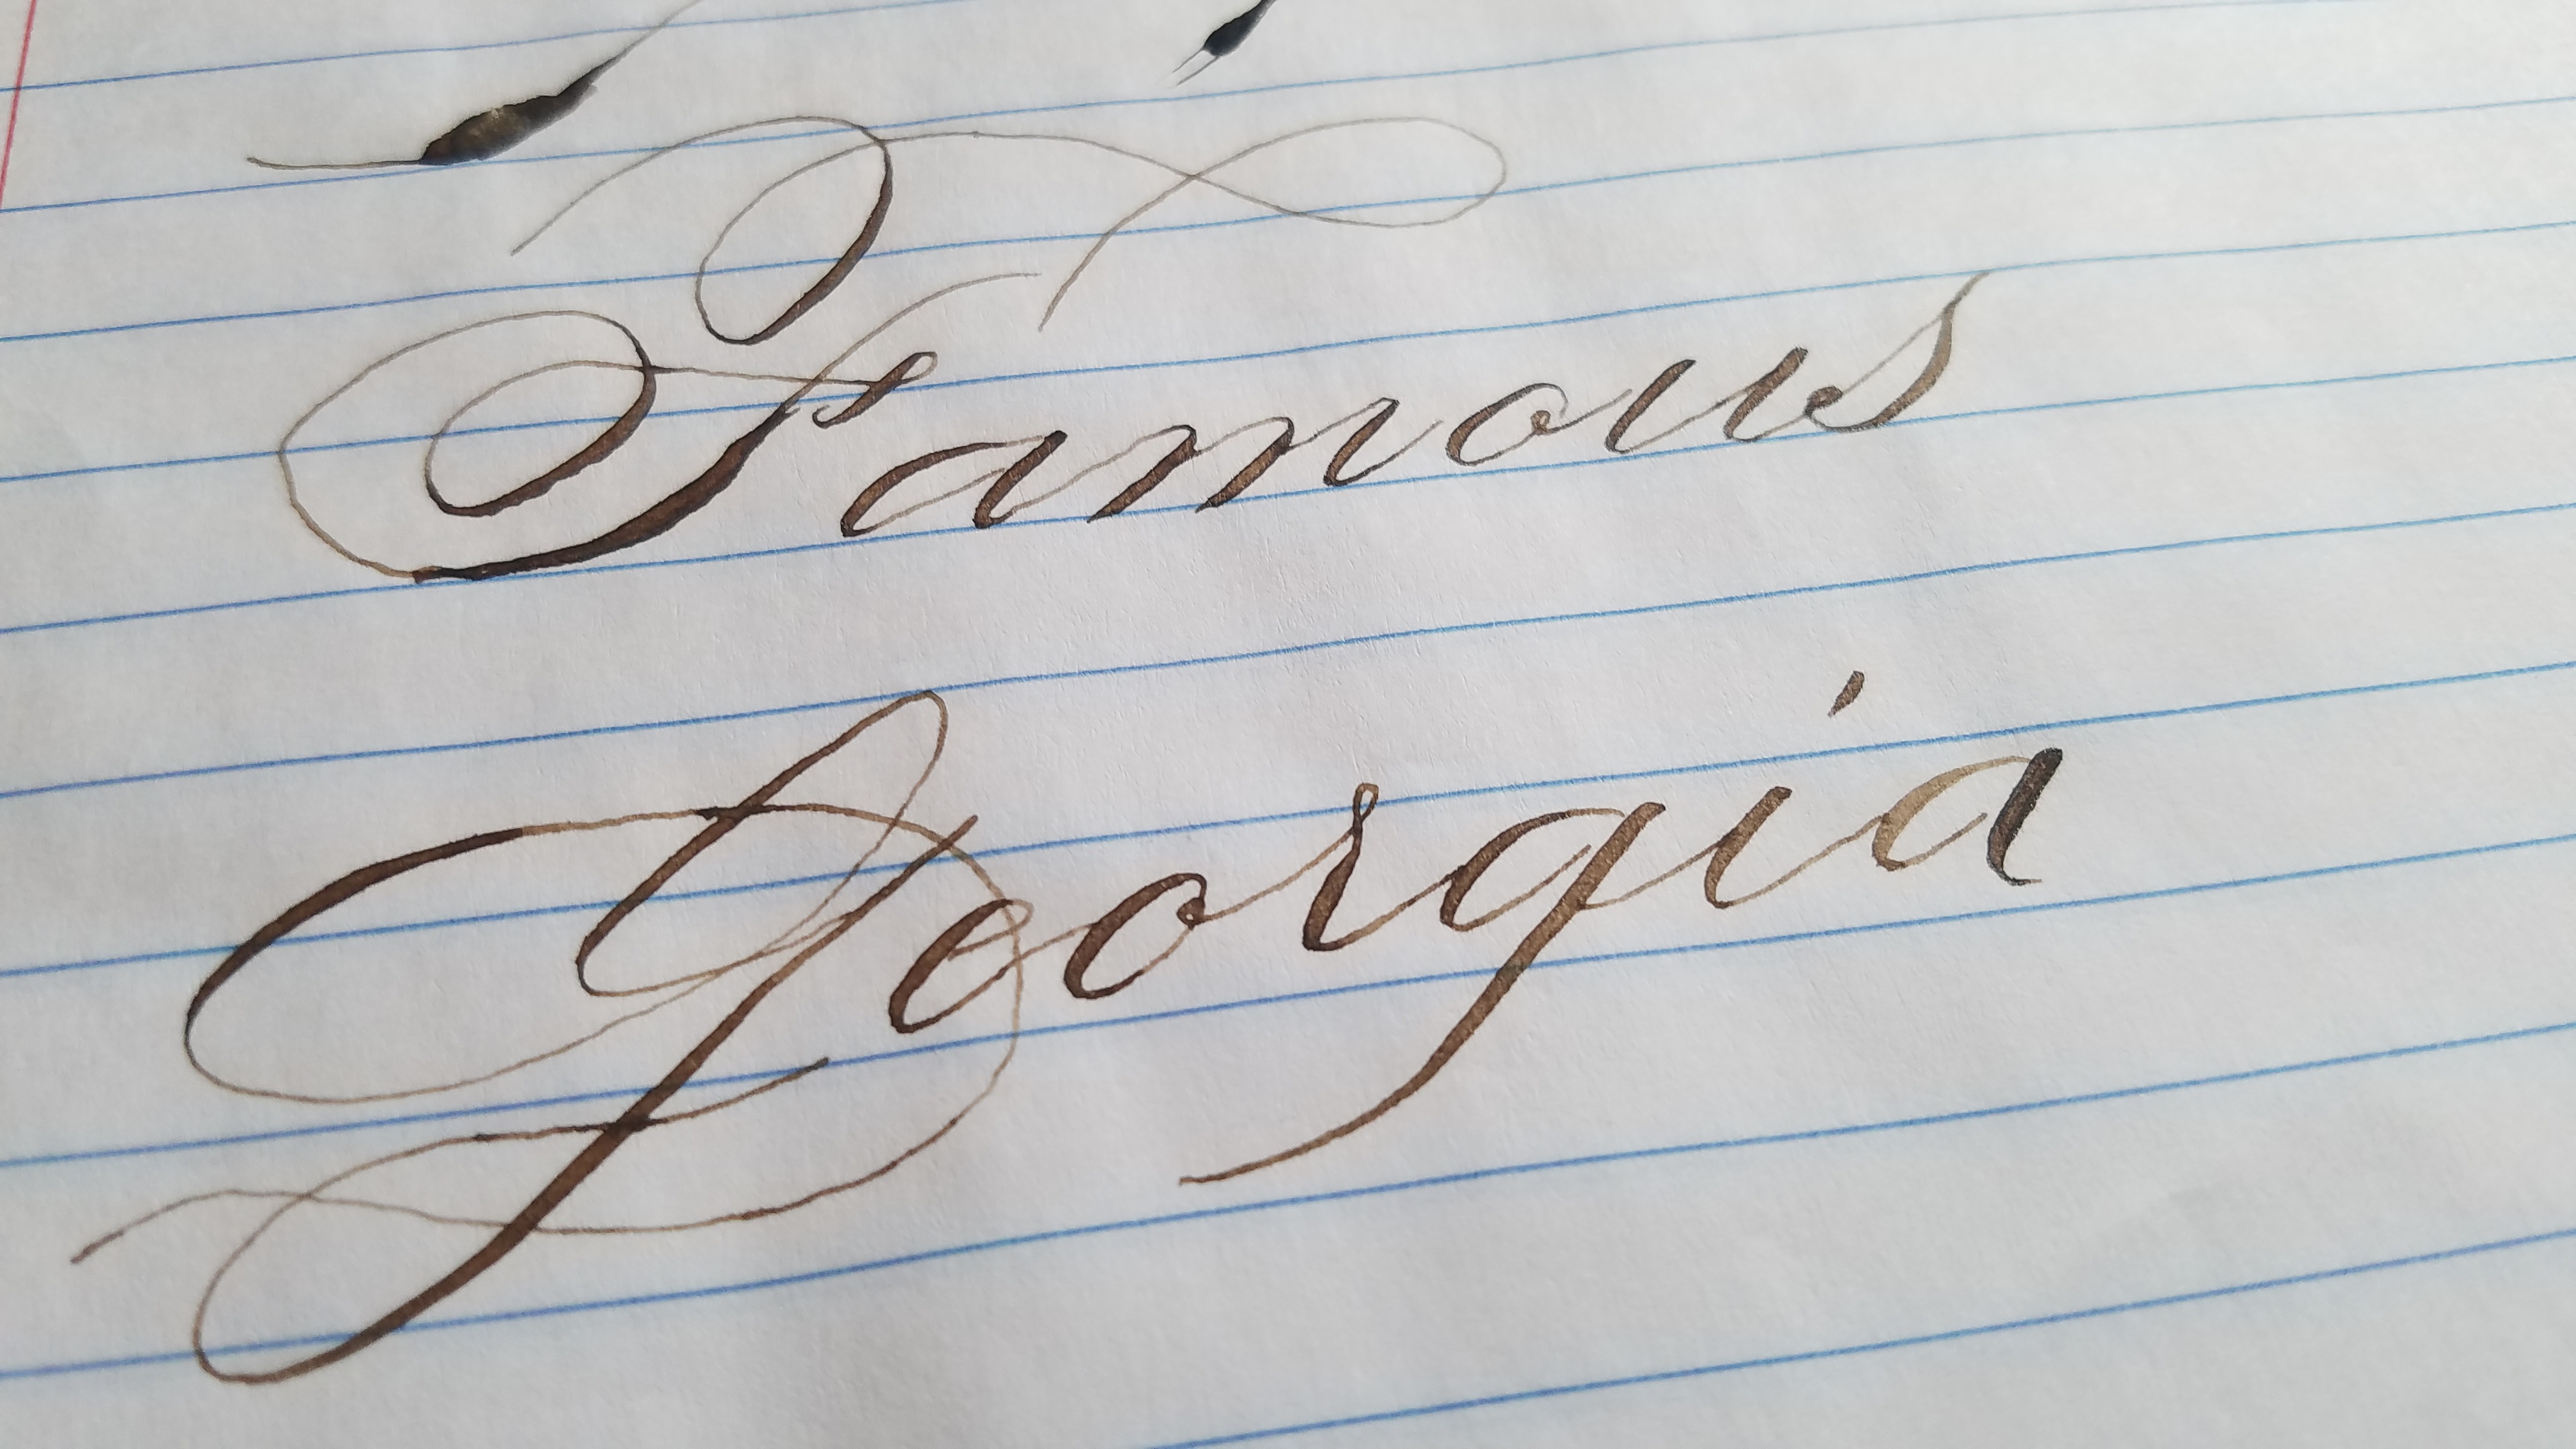 Famous
Georgia